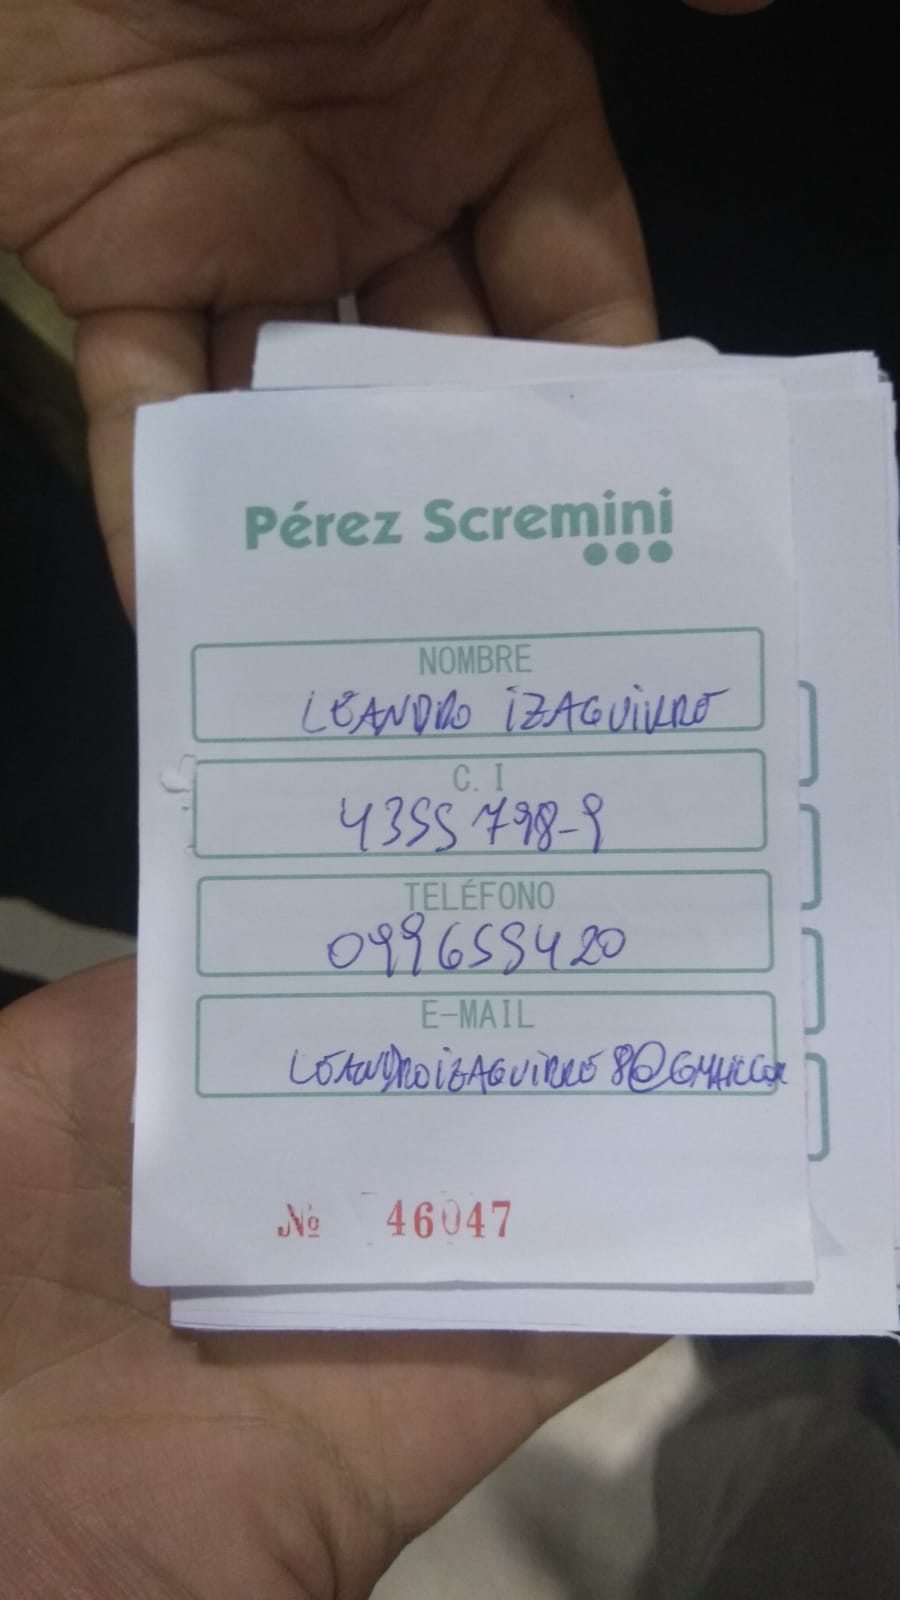 Pérez Scremini
NOMBRE
LEANDRO IZAGUIRRE
C. I
4355 798-9
TELÉFONO
099655420
E-MAIL
LEANDROIZAGUIRRE8@GMAIL.COM
№ 46047